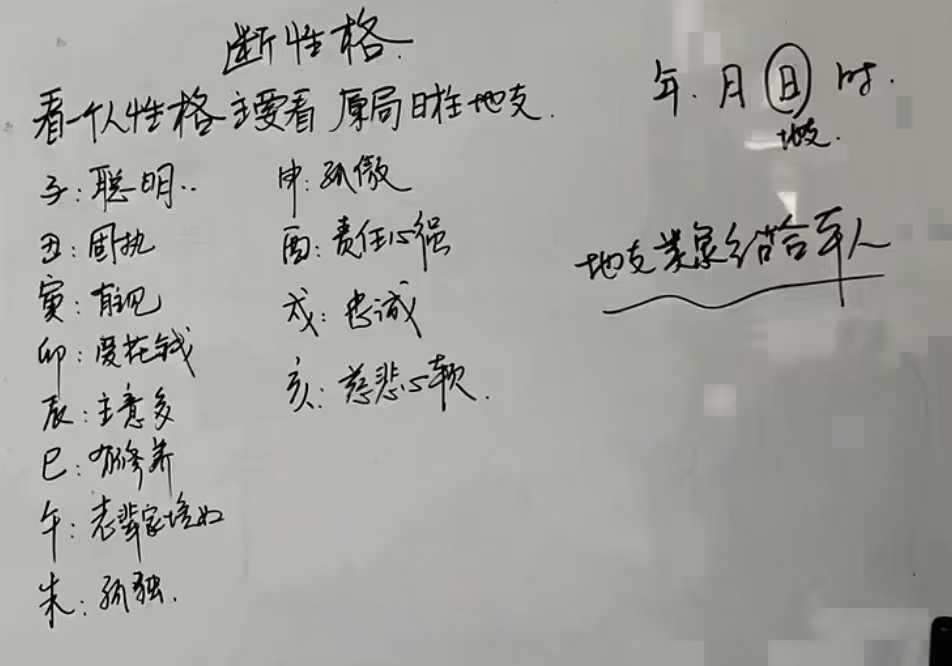 断性格.
看一个人性格主要看 原局日柱地支.
年.月 日 时.
地支.
子:聪明..
丑:固执
寅:有主见
卯:爱花钱
辰:主意多
巳:有修养
午:老辈家境好
未:孤独.
申:孤傲
酉:责任心强
戌:忠诚
亥:慈悲心软.
地支类象结合军人